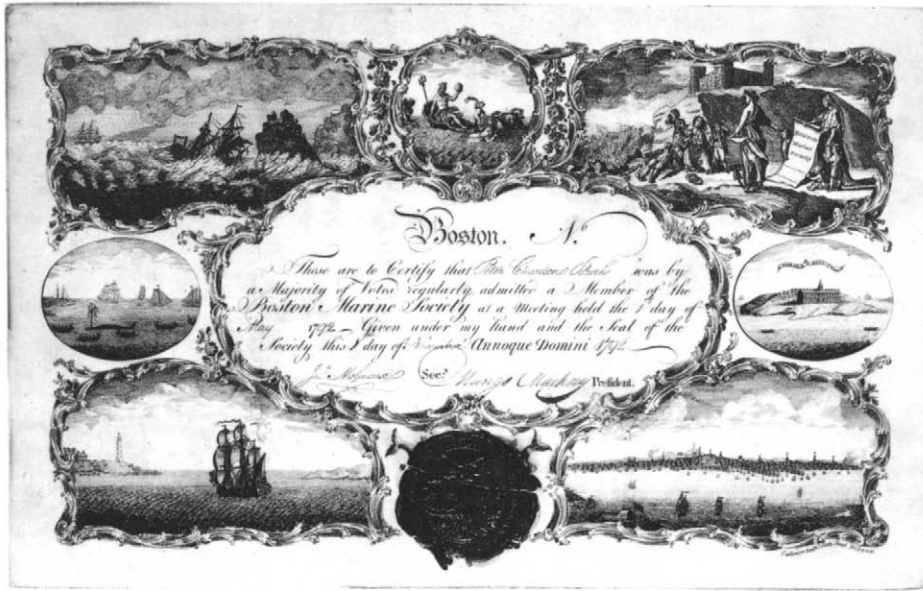 Boston
Marine
Society
Boston. No.
These are to Certify that Peter Chardon Brooks was by
a Majority of Votes regularly admitted a Member of the
Boston Marine Society at a Meeting held the 1 day of
May 1792 Given under my Hand and the Seal of the
Society this 1 day of Annoque Domini 1792
Secy. Mungo Mackay President.